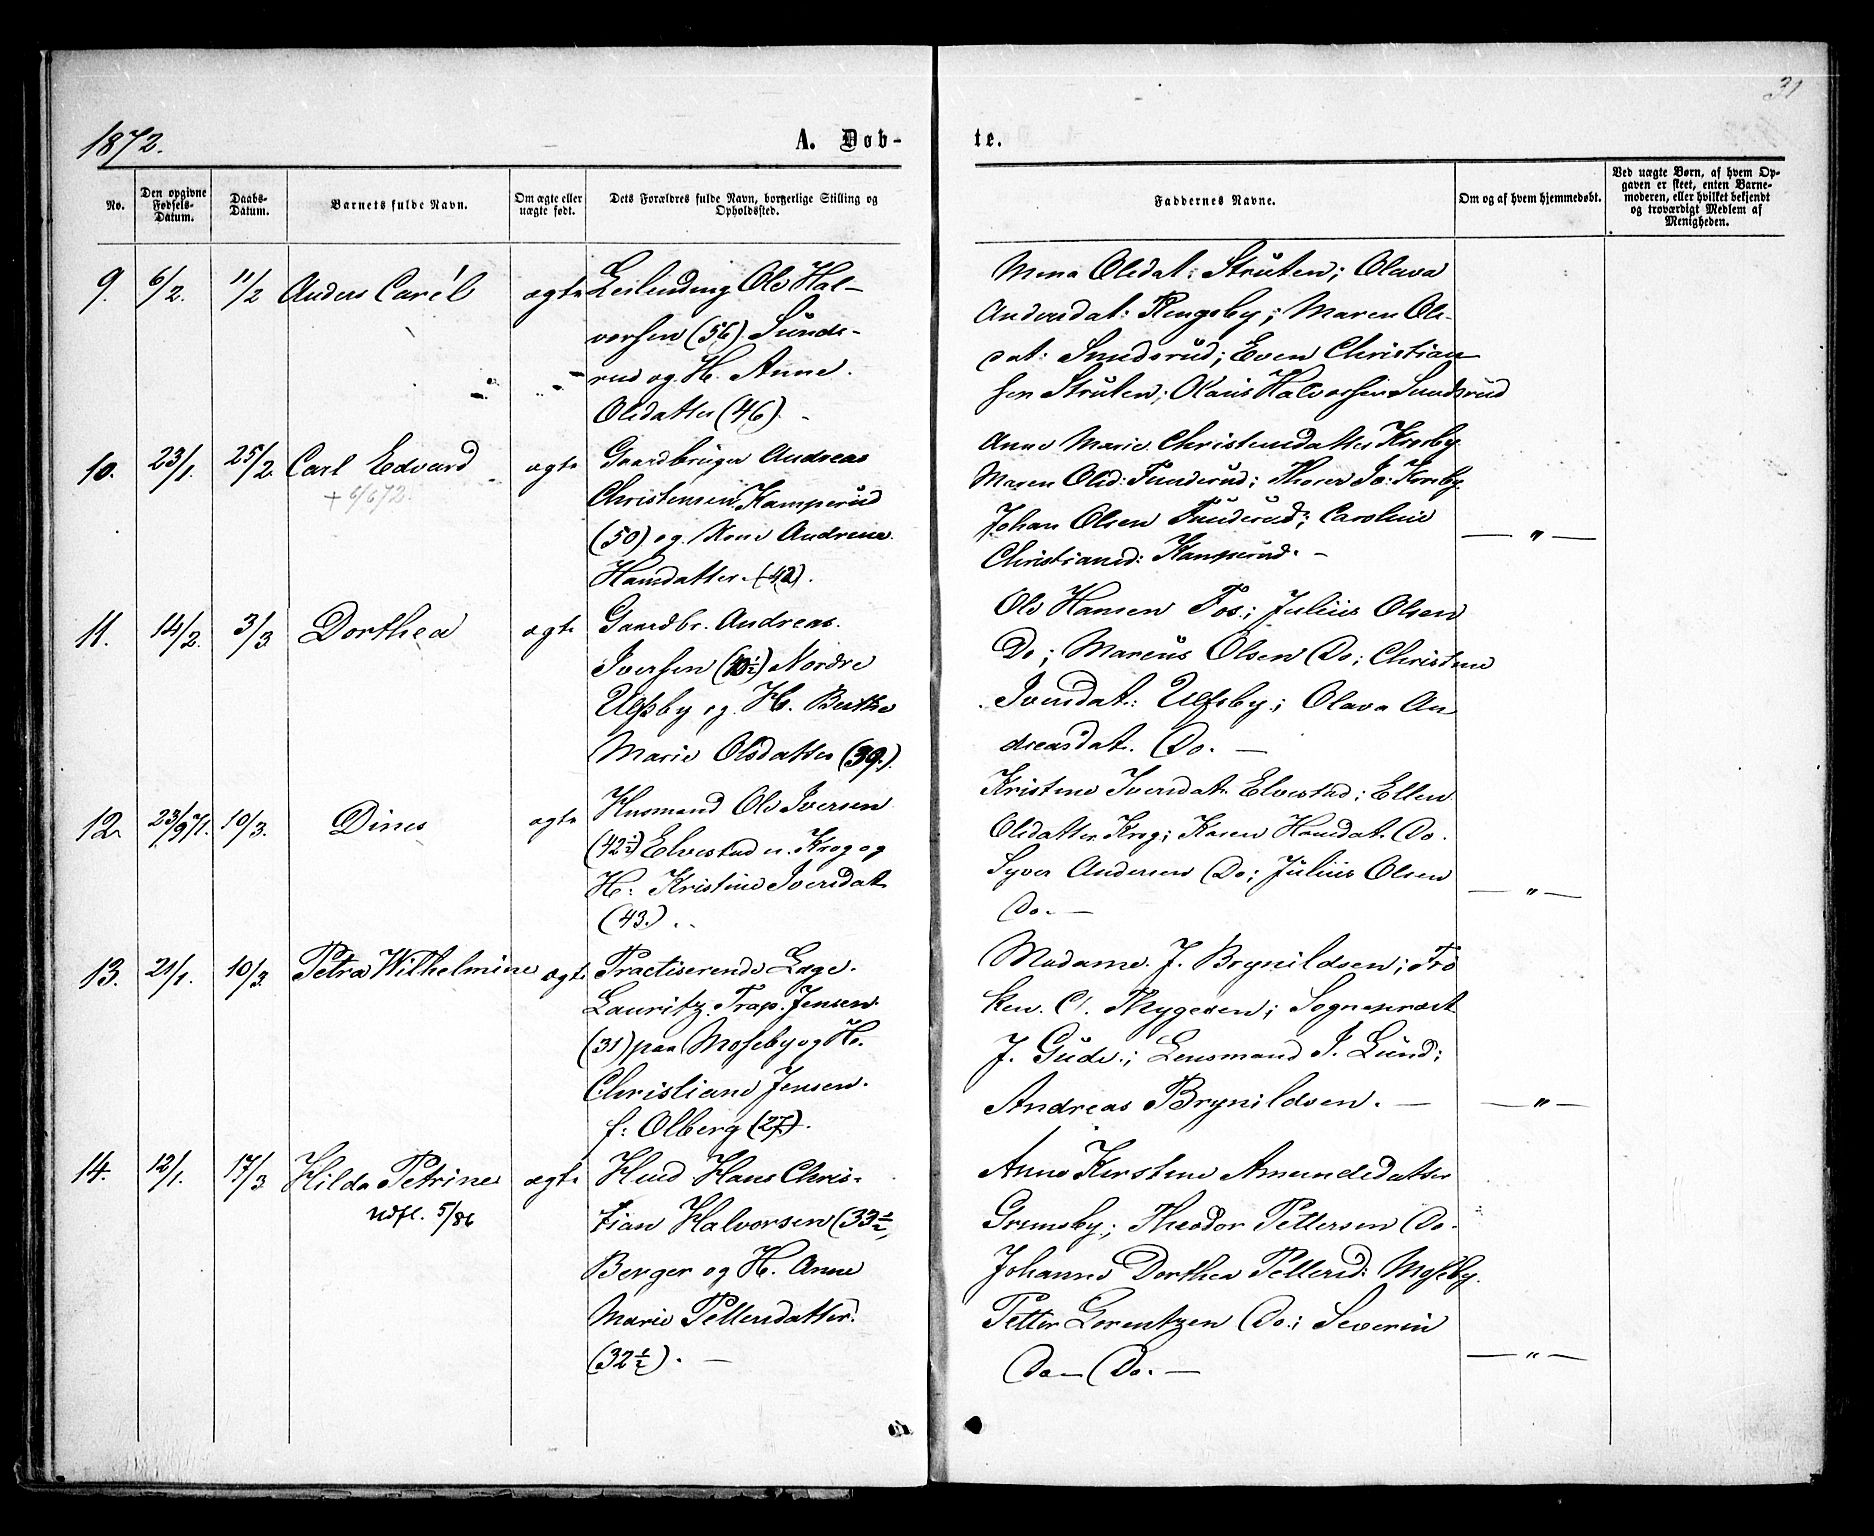 31
1872.
A. Døb-
te.
No.
Den opgivne
Fødsels-
Datum.
Daabs-
Datum.
Barnets fulde Navn.
Om ægte eller
uægte født.
Dets Forældres fulde Navn, borgerlige Stilling og
Opholdssted.
Faddernes Navne.
Om og af hvem hjemmedøbt.
Ved uægte Børn, af hvem Op-
gaven er skeet, enten Barne-
moderen, eller hvilket bekjendt
og troværdigt Medlem af
Menigheden.
9. 6/2. 11/2 Anders Carél ægte Leilending Ole Hal-
vorsen (56) Sunds-
rud og H. Anne
Olsdatter (46).
Mina Olsdat: Strüten; Olava
Andersdat: Kingsby; Maren Ols-
dat: Sundsrud; Even Christian
sen Struten; Olaus Halvorsen Sundsrud
10. 23/1. 25/2. Carl Edvard ægte Gaardbruger Andreas
+ 6/6 72.
Christensen Kamperüd
(50) og Kone Andrine
Hansdatter (42).
Anne Marie Christensdatter Korsby
Maren Olsd: Funderud; Thorer Jo: Korsby
Johan Olsen Funderud; Caroline
Christiansd: Kamperud. —
— " —
11. 14/2. 3/3 Dorthea ægte Gaardbr. Andreas
Iversen (40½) Nordre
Ulfsby og H. Berthe
Marie Olsdatter (39.)
Ole Hansen Fos; Julius Olsen
Do; Marcus Olsen Do; Christine
Iversdat: Ulfsby; Olava An
dreasdat. Do. —
12. 23/9 71. 10/3. Dines ægte Husmand Ole Iversen
(42½) Elvestad u. Krog og
H: Kristine Iversdat
(43.)
Kristine Iversdat Elvestad; Ellen
Olsdatter Krog; Karen Hansdat. Do.
Syver Andersen Do; Julius Olsen
Do. —
— " —
13. 21/1. 10/3. Petra Wilhelmine ægte Practiserende Læge
Lauritz Trap Jensen
(31) paa Moseby og H.
Christiane Jensen
f: Olberg (27).
Madame J. Brynildsen; Frö
ken C. Thygesen; Sognepræst
J. Gude; Lensmand J. Lund;
Andreas Brynildsen. —
— " —
14. 12/1. 17/3 Hilda Petrine ægte Husd Hans Chris-
udfl. 5/86
tian Halvorsen (33½)
Berger og H. Anne
Marie Pettersdatter
(32½). —
Anne Kirstine Amundsdatter
Gremsby; Theodor Pettersen Do.
Johanne Dorthea Pettersd: Moseby.
Petter Lorentzen Do; Severin
Do — Do. —
— " —